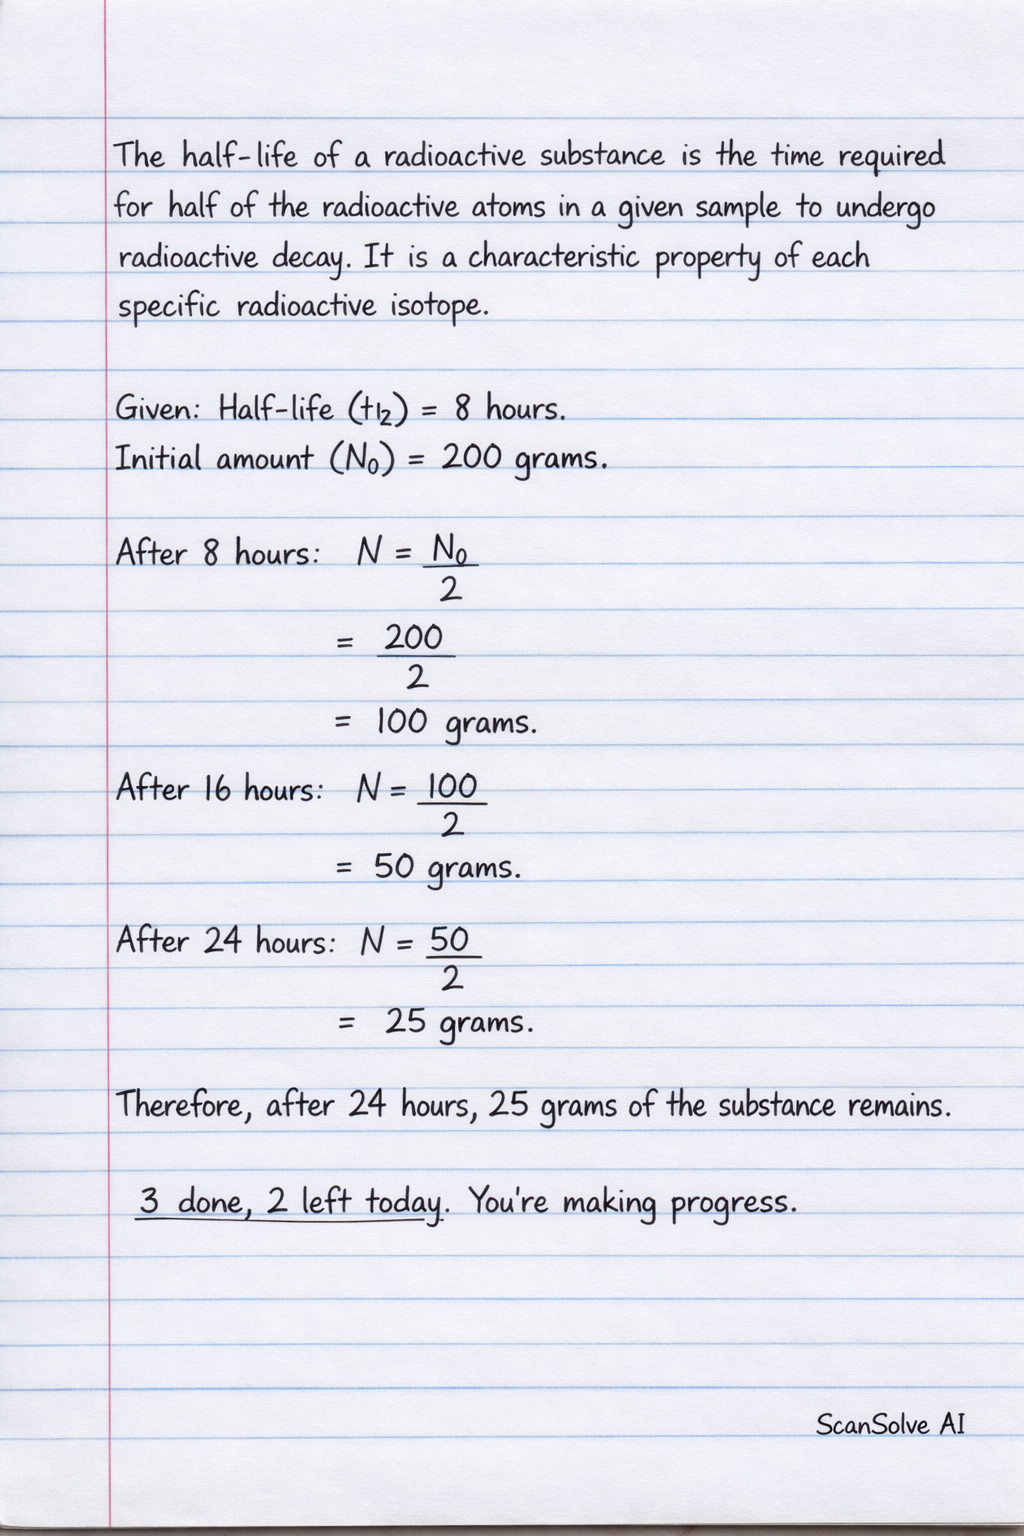 The half-life of a radioactive substance is the time required
for half of the radioactive atoms in a given sample to undergo
radioactive decay. It is a characteristic property of each
specific radioactive isotope.
Given: Half-life (t½) = 8 hours.
Initial amount (N₀) = 200 grams.
After 8 hours: N = N₀
2
= 200
2
= 100 grams.
After 16 hours: N = 100
2
= 50 grams.
After 24 hours: N = 50
2
= 25 grams.
Therefore, after 24 hours, 25 grams of the substance remains.
3 done, 2 left today. You're making progress.
ScanSolve AI